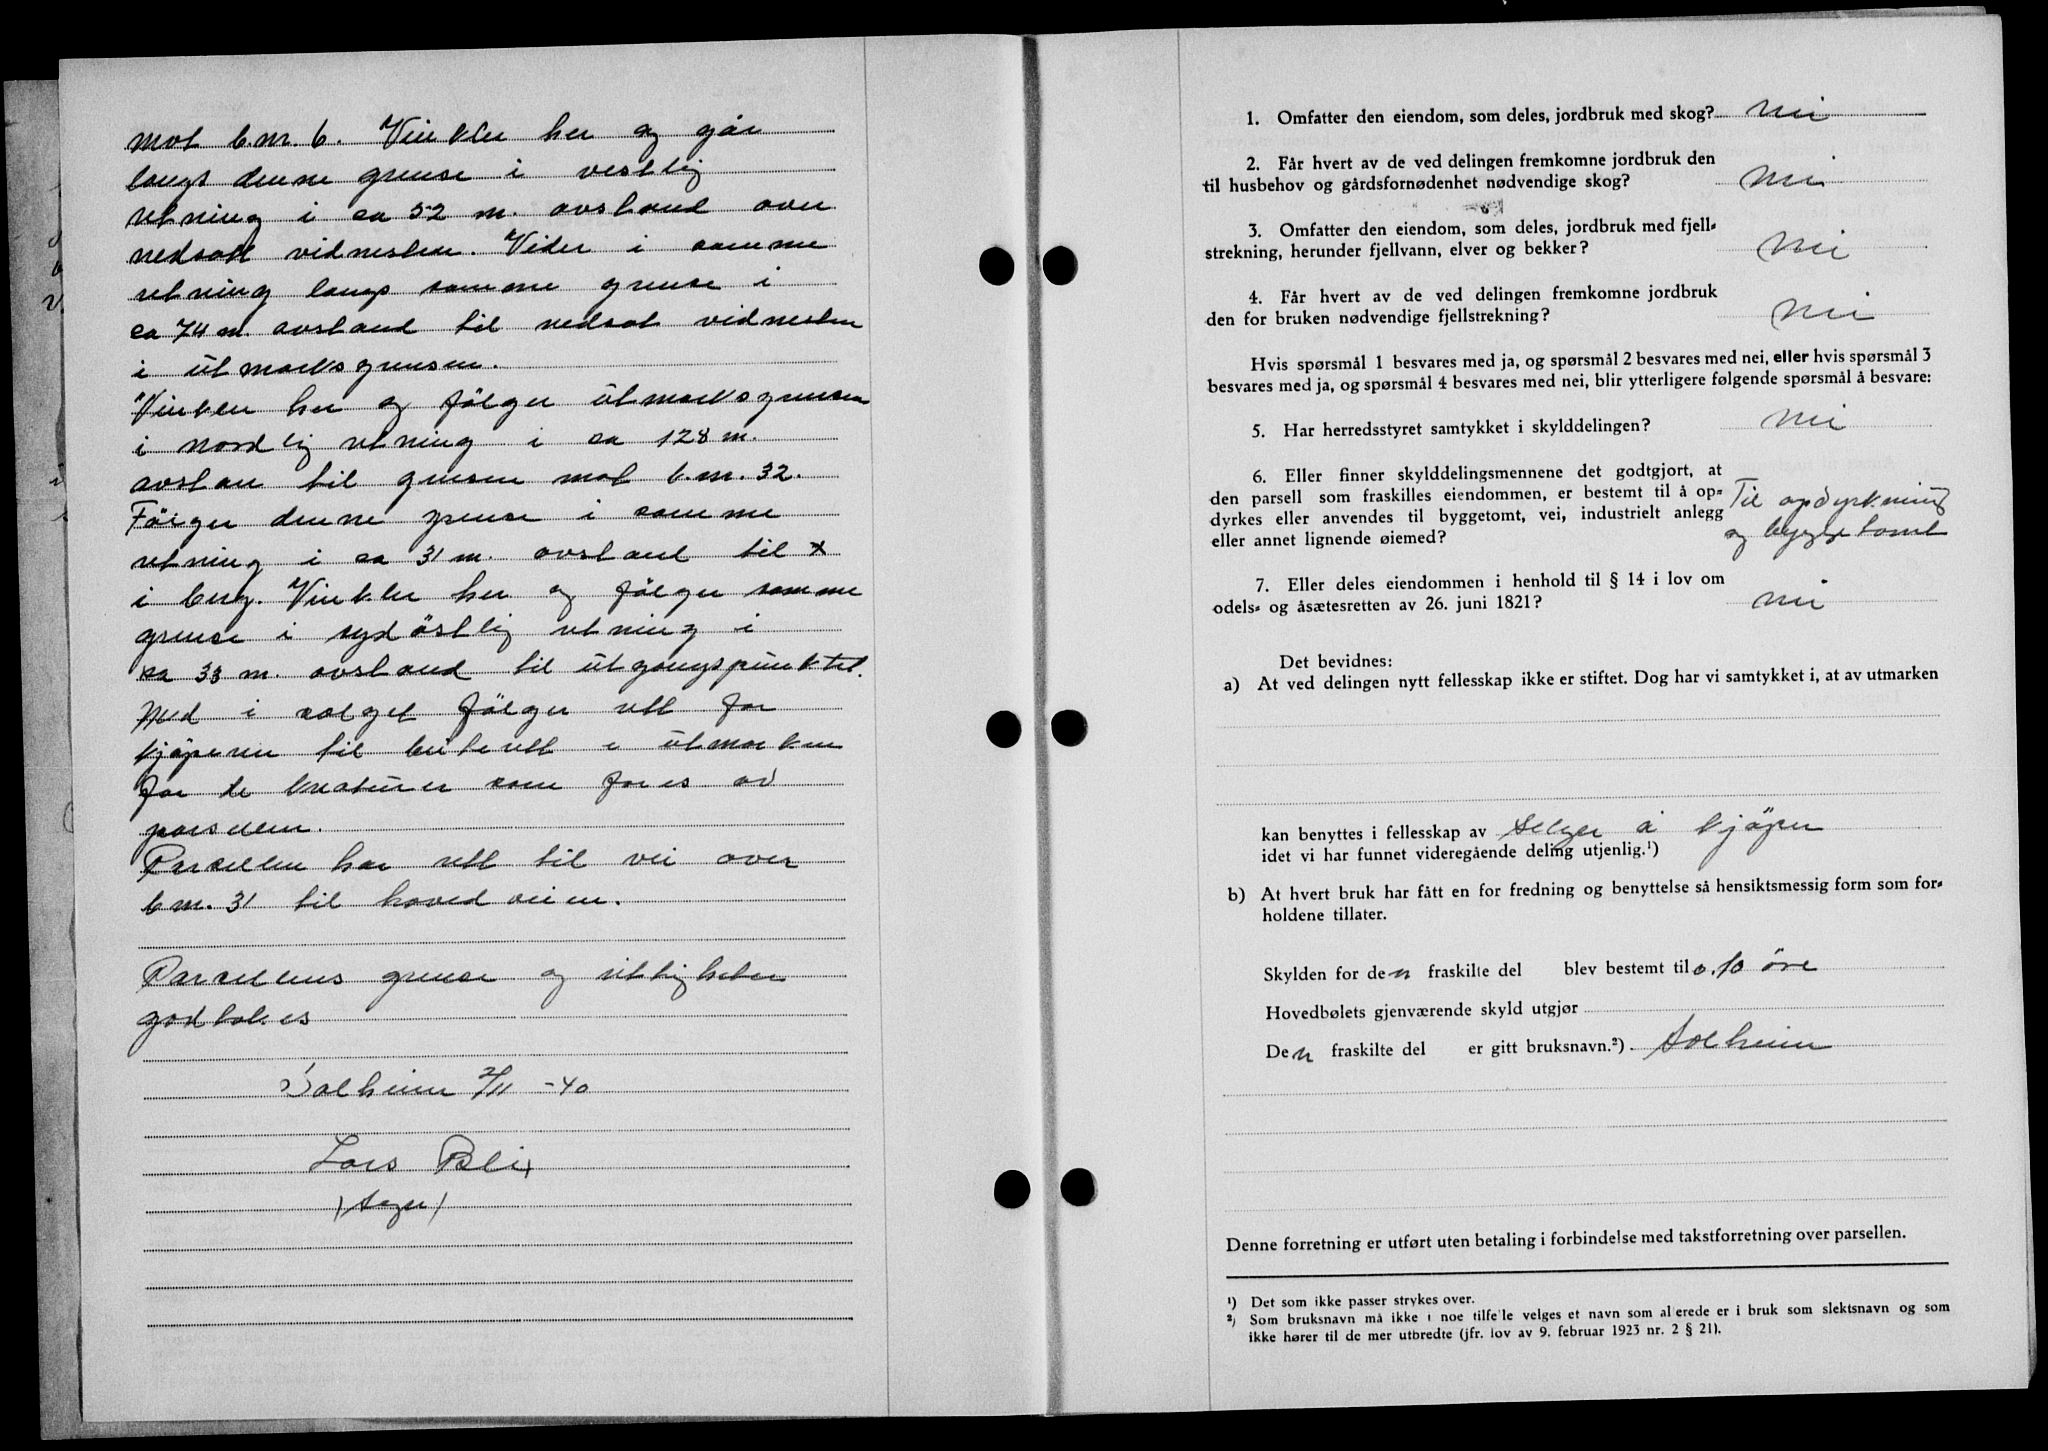 mot b.nr. 6. Vinkler her og går
langs denne grense i vestlig
retning i ca 52 m. avstand over
nedsatt vidnesten. Vider i samme
retning langs samme grense i
ca 74 m avstand til nedsat vidnesten
i utmarksgrensen.
Vinkler her og følger utmarksgrensen
i nordlig retning i ca 128 m.
avstan til grensen mot b.nr. 32.
Følger denne grense i samme
retning i ca 31 m. avstand til x
i berg. Vinkler her og følger samme
grense i sydöstlig retning i
ca 33 m. avstand til utgangspunktet.
Med i salget følger rett for
kjøperen til beiterett i utmarken
for de kreaturer som fores av
parsellen.
Parsellen har rett til vei over
b nr. 31 til hovedveien.
Parsellens grense og rettigheter
godtakes
Solheim 2/11 -40
Lars
1. Omfatter den eiendom, som deles, jordbruk med skog? nei
2. Får hvert av de ved delingen fremkomne jordbruk den
til husbehov og gårdsfornødenhet nødvendige skog? nei
3. Omfatter den eiendom, som deles, jordbruk med fjell-
strekning, herunder fjellvann, elver og bekker? nei
4. Får hvert av de ved delingen fremkomne jordbruk
den for bruken nødvendige fjellstrekning? nei
Hvis spørsmål 1 besvares med ja, og spørsmål 2 besvares med nei, eller hvis spørsmål 3
besvares med ja, og spørsmål 4 besvares med nei, blir ytterligere følgende spørsmål å besvare:
5. Har herredsstyret samtykket i skylddelingen? nei
6. Eller finner skylddelingsmennene det godtgjort, at
den parsell som fraskilles eiendommen, er bestemt til å op-
dyrkes eller anvendes til byggetomt, vei, industrielt anlegg
eller annet lignende øiemed? Til opdyrkning
og byggetomt
7. Eller deles eiendommen i henhold til § 14 i lov om
odels- og åsætesretten av 26. juni 1821? nei
Det bevidnes:
a) At ved delingen nytt fellesskap ikke er stiftet. Dog har vi samtykket i, at av utmarken
kan benyttes i fellesskap av selger å kjøper
idet vi har funnet videregående deling utjenlig.¹)
b) At hvert bruk har fått en for fredning og benyttelse så hensiktsmessig form som for-
holdene tillater.
Skylden for den fraskilte del blev bestemt til 0.10 öre
Hovedbølets gjenværende skyld utgjør
Den fraskilte del er gitt bruksnavn.²) Solheim
Denne forretning er utført uten betaling i forbindelse med takstforretning over parsellen.
¹) Det som ikke passer strykes over.
²) Som bruksnavn må ikke i noe tilfelle velges et navn som allerede er i bruk som slektsnavn og som
ikke hører til de mer utbredte (jfr. lov av 9. februar 1923 nr. 2 § 21).